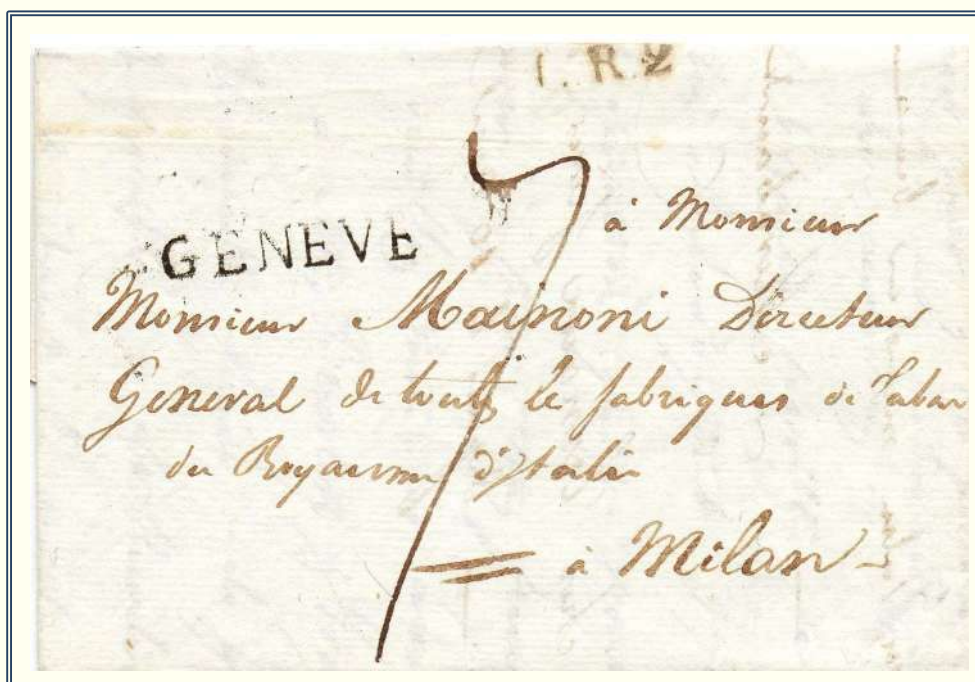 C. R. 2
7
GENEVE
à Monsieur
Monsieur Mainoni Directeur
General de toutes le fabriques de Tabac
du Royaume d'Italie
à Milan